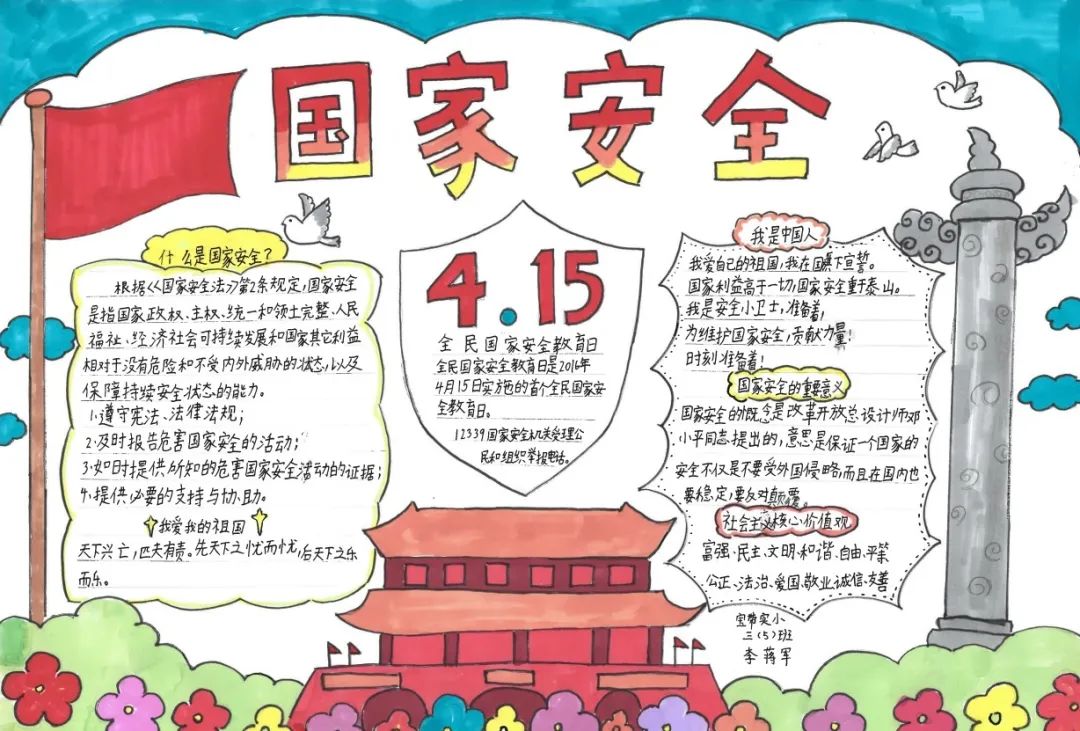 国家安全
什么是国家安全?
根据《国家安全法》第2条规定,国家安全
是指国家政权、主权、统一和领土完整、人民
福祉、经济社会可持续发展和国家其它利益
相对于没有危险和不受内外威胁的状态,以及
保障持续安全状态的能力。
1.遵守宪法、法律法规;
2.及时报告危害国家安全的活动;
3.如时提供所知的危害国家安全活动的证据;
4.提供必要的支持与协助。
我爱我的祖国
天下兴亡,匹夫有责。先天下之忧而忧,后天下之乐
而乐。
4.15
全民国家安全教育日
全民国家安全教育日是2016年
4月15日实施的首个全民国家安
全教育日。
12339国家安全机关受理公
民和组织举报电话。
我是中国人
我爱自己的祖国,我在国旗下宣誓。
国家利益高于一切,国家安全重于泰山。
我是安全小卫士,准备着,
为维护国家安全,贡献力量!
时刻准备着!
国家安全的重要意义
国家安全的概念是改革开放总设计师邓
小平同志提出的,意思是保证一个国家的
安全不仅是不要受外国侵略而且在国内也
要稳定,要反对颠覆。
社会主义核心价值观
富强·民主、文明·和谐·自由·平等
公正、法治、爱国、敬业、诚信、友善
宝带实小
三(5)班
李蒋军